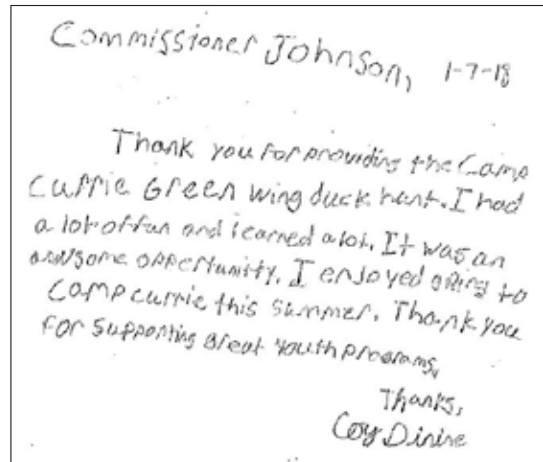 Commissioner Johnson, 1-7-18
Thank you for providing the Camp
Currie Green wing duck hunt. I had
a lot of fun and learned a lot. It was an
awsome oppertunity. I enjoyed going to
Camp currie this summer. Thank you
for supporting great youth programs.
Thanks,
Coy